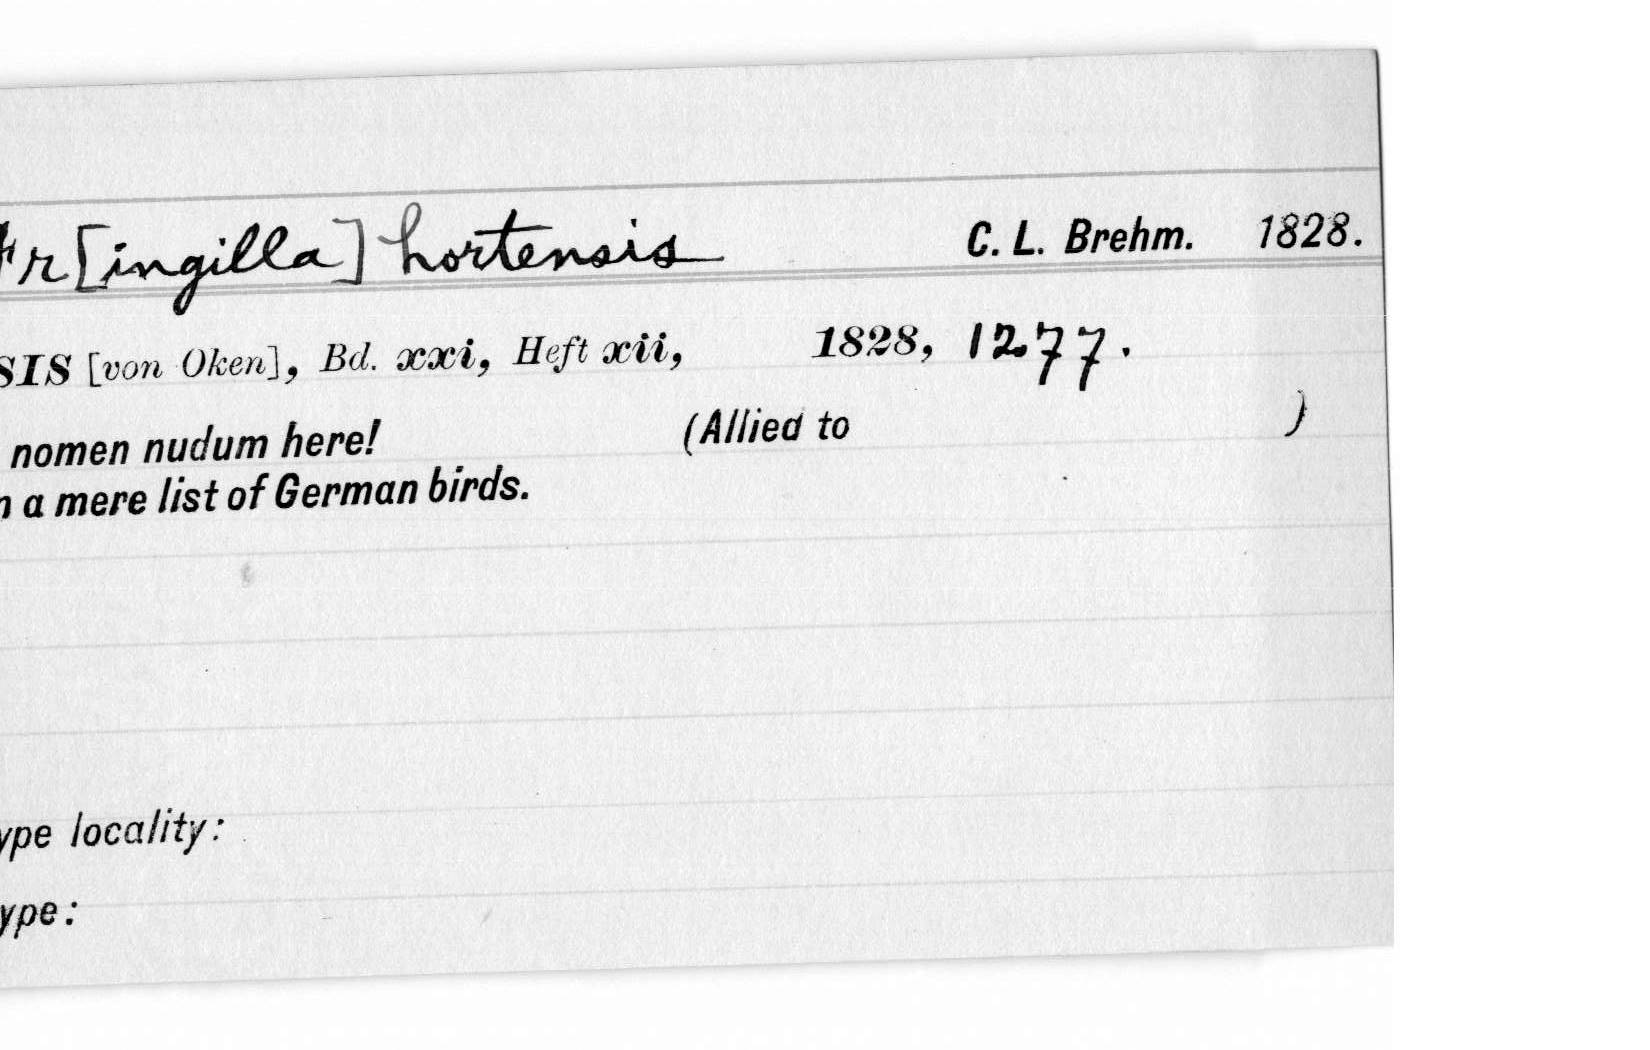 Fr[ingilla] hortensis C. L. Brehm. 1828.
SIS [von Oken], Bd. xxi, Heft xii, 1828, 1277.
nomen nudum here! (Allied to )
n a mere list of German birds.
ype locality:
ype: